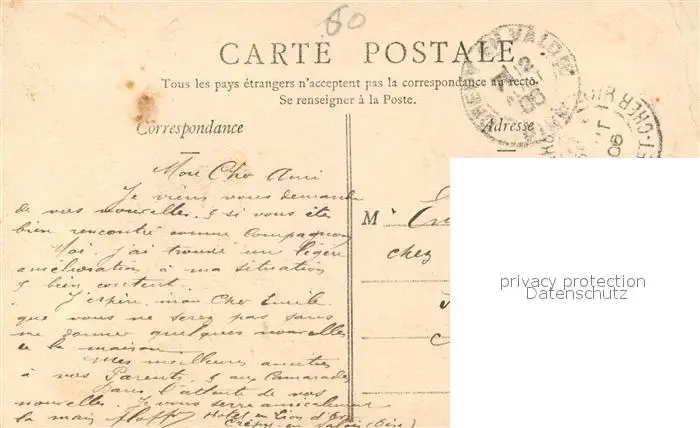 60
CARTE POSTALE
Tous les pays étrangers n'acceptent pas la correspondance au recto.
Se renseigner à la Poste.
Correspondance
Adresse
Mon Cher Ami
Je viens vous demander
de vos nouvelles. & si vous êtes
bien rencontré comme Compagnon
Moi, j'ai trouvé un léger
amélioration à ma situation
& bien content.
J'espère, mon Cher Emile
que vous ne serez pas sans
me donner quelques nouvelles
de la maison
Mes meilleures amitiés
à vos Parents & aux Camarades
Dans l'attente de vos
nouvelles. Je vous serre amicalement
la main
Hotel du Lion d'Or
Crépy-en Valois (Oise)
M
chez
privacy protection
Datenschutz